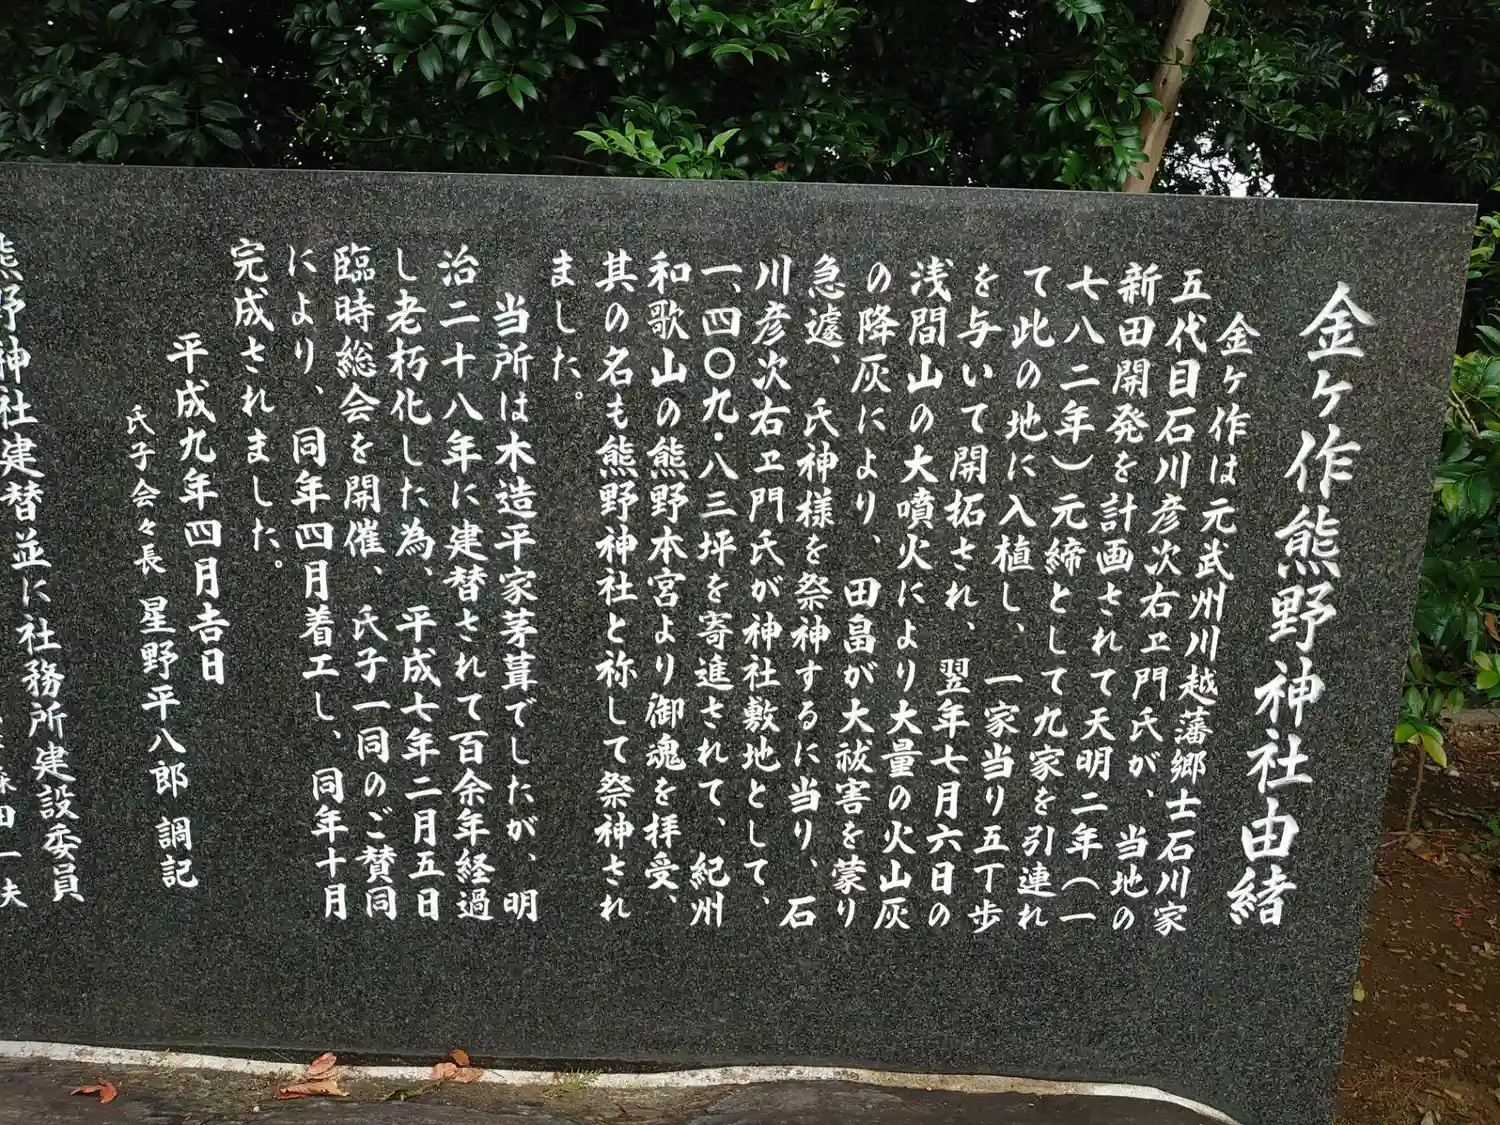 金ヶ作熊野神社由緒
金ヶ作は元武州川越藩郷士石川家
五代目石川彦次右ヱ門氏が、当地の
新田開発を計画されて天明二年(一
七八二年)元締として九家を引連れ
て此の地に入植し、一家当り五丁歩
を与いて開拓され、翌年七月六日の
浅間山の大噴火により大量の火山灰
の降灰により、田畠が大祓害を蒙り
急遽、氏神様を祭神するに当り、石
川彦次右ヱ門氏が神社敷地として、
一、四〇九・八三坪を寄進されて、紀州
和歌山の熊野本宮より御魂を拝受、
其の名も熊野神社と祢して祭神され
ました。
当所は木造平家茅葺でしたが、明
治二十八年に建替されて百余年経過
し老朽化した為、平成七年二月五日
臨時総会を開催、氏子一同のご賛同
により、同年四月着工し、同年十月
完成されました。
平成九年四月吉日
氏子会々長 星野平八郎 調記
熊野神社建替並に社務所建設委員
田一夫